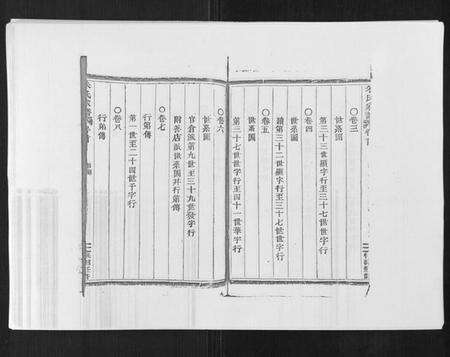 〇卷三
世系圖
第三十三世顯字行至三十七世世字行
〇卷四
世系圖
續第三十二世顯字行至三十七世世字行
〇卷五
世系圖
第三十七世世字行至四十一世華字行
〇卷六
世系圖
官倉派第九世至三十九世發字行
附善店派世系圖并行第傳
〇卷七
行第傳
第一世至二十四世千字行
〇卷八
行第傳